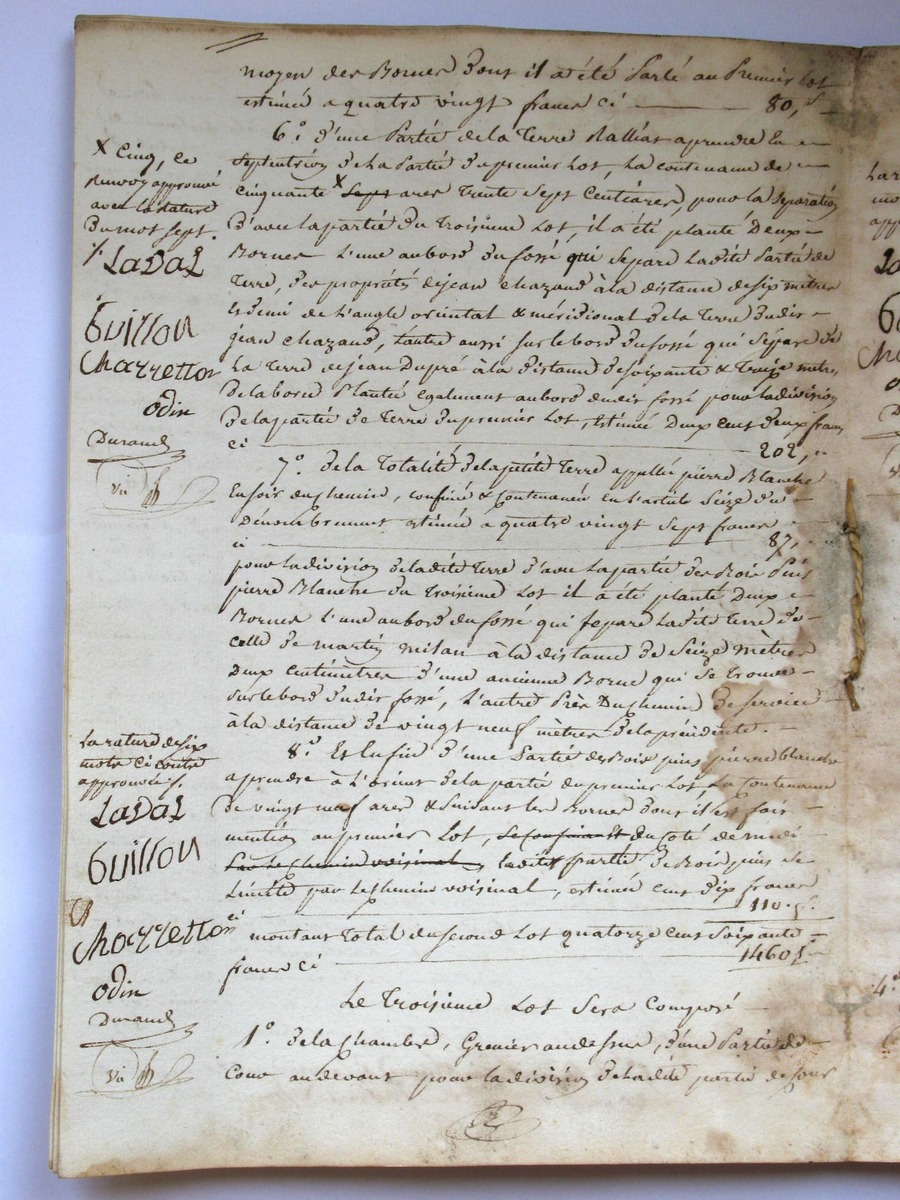 moyen des Bornes Dont il a été Parlé au Premier lot
estimée a quatre vingt francs ci — 80, f
6.° D'une Partie de la Terre Ralliat aprendre En
Septentrion De La Partie Du premier Lot, La contenance de
cinquante x Sept ares Trente Sept Centiares, pour la Separation
D'avec la partie Du Troisieme Lot, il a été planté Deux
Bornes L'une au bord Du fossé qui Separe Ladite Partie de
Terre, Des propriétés de jean chazaud à la distance de six mètres
Et demi de L'angle oriental & méridional De la Terre Dudit
jean chazaud, L'autre aussi sur le bord Du fossé qui Sépare De
La Terre de jean Dupré à la Distance De soixante & Treize mètres
De la borne Plantée egalement au bord dudit fossé pour la division
De la partie De Terre Du premier Lot, estimée Deux cent Deux francs
ci — 202, "
7.° De la Totalité De la petite Terre appellée pierre Blanche
En soir Du chemin, confinée & Contenancée en L'article Seize Du
Dénombrement estimée a quatre vingt Sept francs
ci — 87, "
pour la division De ladite Terre D'avec La partie Des Bois Puis
pierre Blanche Du Troisieme Lot il a été planté Deux
Bornes L'une au bord Du fossé qui Separe Ladite Terre De
Celle De martin milan à la distance De Seize mètres
Deux centimètres D'une ancienne Borne qui Se Trouve
Sur le bord Dudit fossé, L'autre Près Du chemin De Service
à la distance De vingt neuf mètres De la précédente.
8.° Et Enfin D'une Partie Des Bois puis pierre blanche
aprendre à L'orient De la partie Du premier Lot La Contenance
De vingt neuf ares & Suivant les Bornes Dont il est fait
mention au premier Lot, Se confinant Du coté de midi
Par Le chemin voisinal, Ladite partie De Bois puis Se
Limite par Le chemin voisinal, estimée cent Dix francs
ci — 110. f.
montant Total Du second Lot quatorze cent Soixante
francs ci — 1460 f.
Le Troisieme Lot Sera Composé
1.° De la chambre, Grenier au dessus, D'une Partie De
Cour au devant pour la division De ladite partie de Cour
x Cinq, ce
renvoy approuvé
avec la rature
Du mot sept.
LaDaL
Guillon
Charretton
odin
Durand
Vu
La rature de six
mots ci contre
approuvée
LaDaL
Guillon
Charretton
odin
Durand
Vu